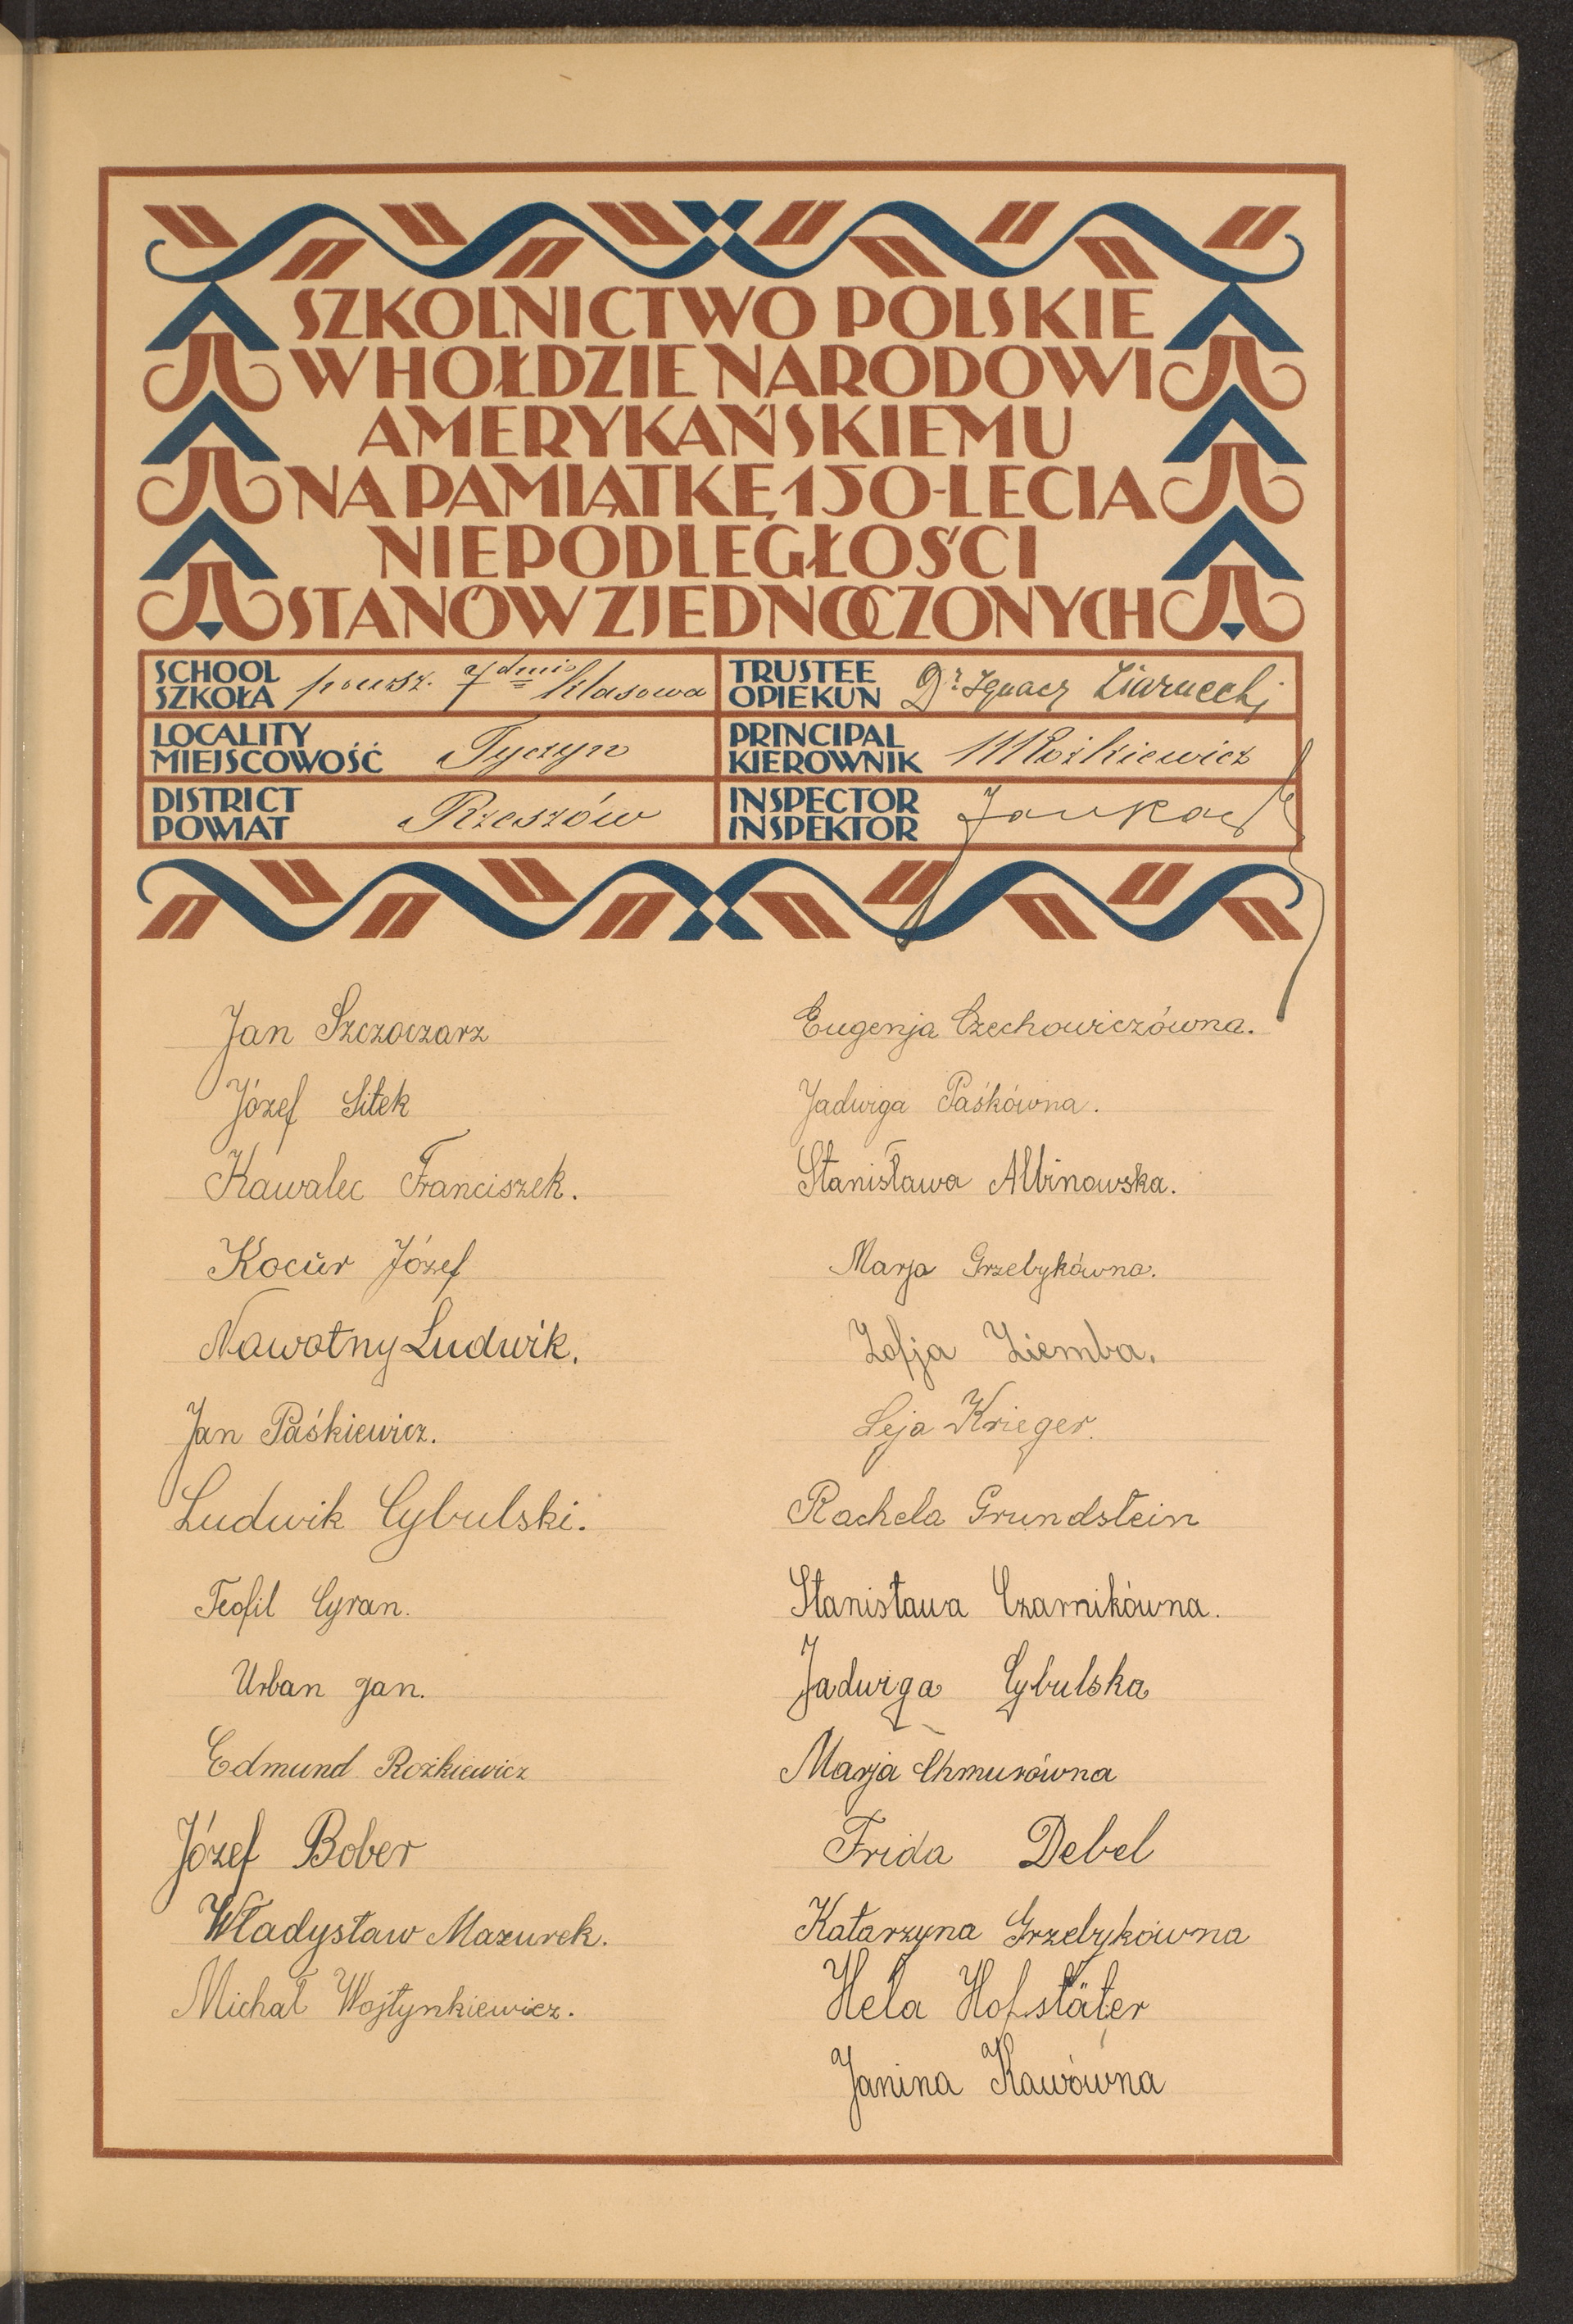 SZKOLNICTWO POLSKIE
W HOŁDZIE NARODOWI
AMERYKAŃSKIEMU
NA PAMIĄTKĘ 150-LECIA
NIEPODLEGŁOŚCI
STANÓW ZJEDNOCZONYCH
SCHOOL
SZKOŁA powsz. 7dmio klasowa
TRUSTEE
OPIEKUN Dr. Ignacy
LOCALITY
MIEJSCOWOŚĆ Tyczyn
PRINCIPAL
KIEROWNIK MRożkiewicz
DISTRICT
POWIAT Rzeszów
INSPECTOR
INSPEKTOR
Jan Szczoczarz
Józef Sitek
Kawalec Franciszek.
Kocúr Józef
Nawotny Ludwik.
Jan Paśkiewicz.
Ludwik Cybulski.
Teofil Cyran.
Urban Jan.
Edmund Rożkiewicz
Józef Bober
Władysław Mazurek.
Michał Wojtynkiewicz.
Eugenja Czechowiczówna.
Jadwiga Paśkówna.
Stanisława Albinowska.
Marja Grzebykówna.
Zofja Ziemba.
Leja Krieger.
Rachela Grundstein
Stanisława Czarnikówna.
Jadwiga Cybulska
Marja Chmurówna
Frida Debel
Katarzyna Grzebykówna
Hela Hofstäter
Janina Kawówna